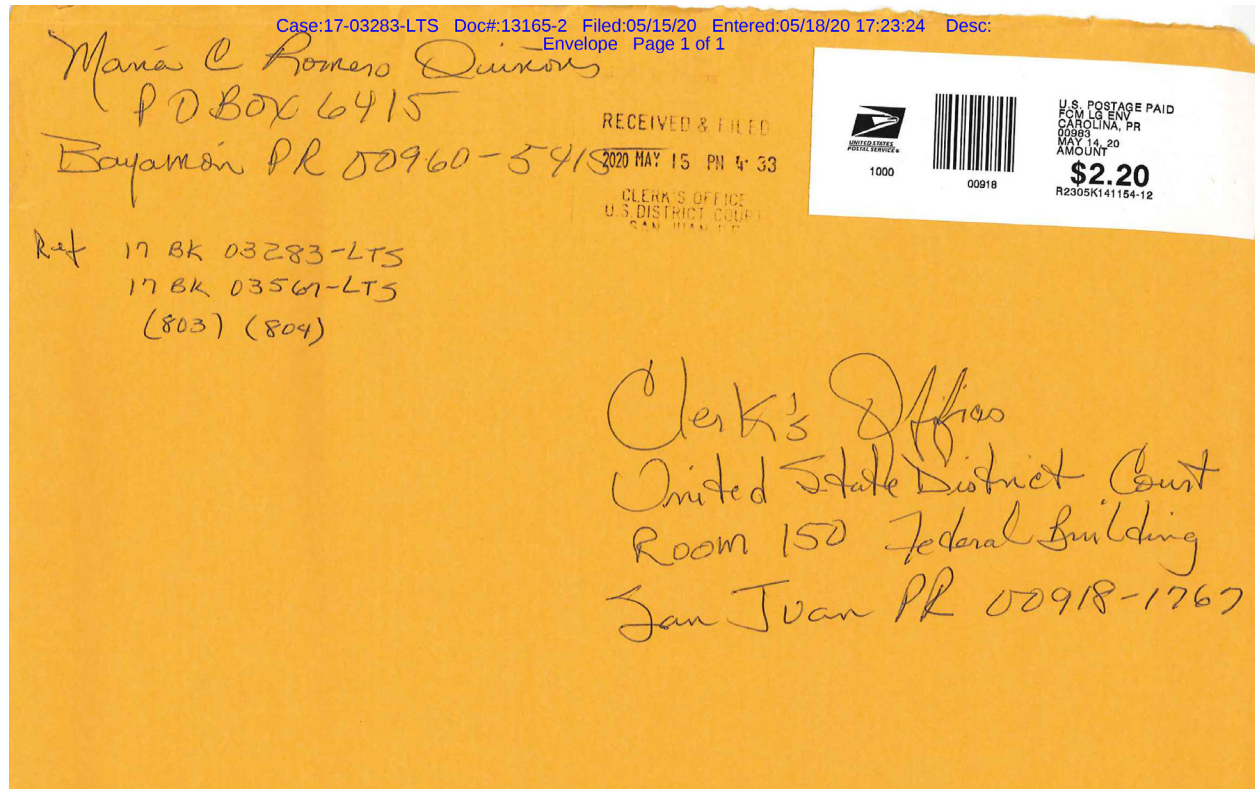 Case:17-03283-LTS Doc#:13165-2 Filed:05/15/20 Entered:05/18/20 17:23:24 Desc:
Envelope Page 1 of 1
María C Romero Quiñones
P O BOX 6415
Bayamón PR 00960-5415
RECEIVED & FILED
2020 MAY 15 PM 4:33
CLERK'S OFFICE
U.S. DISTRICT COURT
SAN JUAN
UNITED STATES
POSTAL SERVICE®
1000
00918
U.S. POSTAGE PAID
FCM LG ENV
CAROLINA, PR
00983
MAY 14, 20
AMOUNT
$2.20
R2305K141154-12
Ref 17 BK 03283-LTS
17 BK 03567-LTS
(803) (804)
Clerk's Office
United State District Court
Room 150 Federal Building
San Juan PR 00918-1767